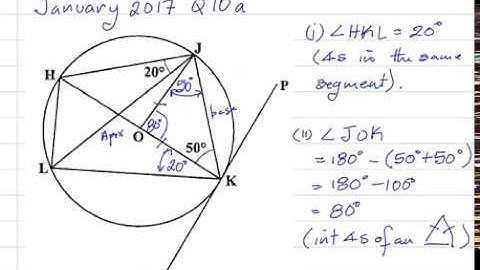 January 2017 Q10a
(i) ∠HKL = 20°
(∠s in the same
segment).
J
20°
H
50°
P
base
80°
Apex
O
50°
20°
L
K
(ii) ∠JOK
= 180° - (50°+50°)
= 180° - 100°
= 80°
(int ∠s of an △)